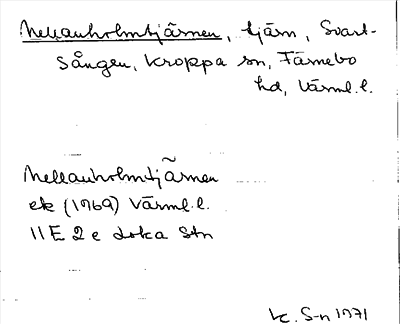 Mellanholmtjärnen, tjärn, Svart-
sången, Kroppa sn, Färnebo
hd, Värml.l.
Mellanholmtj~ärnen
ek (1969) Värml.l.
11E 2e Loka Stn
K. S-n 1971